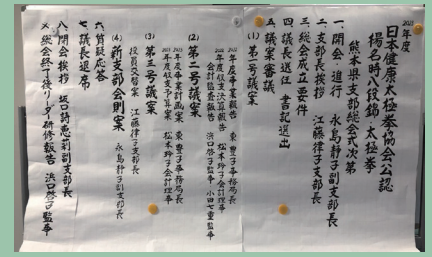 2023年度
日本健康太極拳協会公認
楊名時八段錦・太極拳
熊本県支部総会式次第
一、開会・進行 永島静子副支部長
二、支部長挨拶 江藤律子支部長
三、総会成立要件
四、議長選任 書記選出
五、議案審議
(1) 第一号議案
2022年度事業報告 東豊子事務局長
2022年度収支決算報告 松本玲子会計理事
会計監査報告 浜口啓子監事・小田七重監事
(2) 第二号議案
2023年度事業計画案 東豊子事務局長
2023年度収支予算案 松本玲子会計理事
(3) 第三号議案
役員交替案 江藤律子支部長
(4) 新支部会則案 永島静子副支部長
六、質疑応答
七、議長退席
八、閉会挨拶 坂口詩恵莉副支部長
×、総会終了後リーダー研修報告 浜口啓子監事